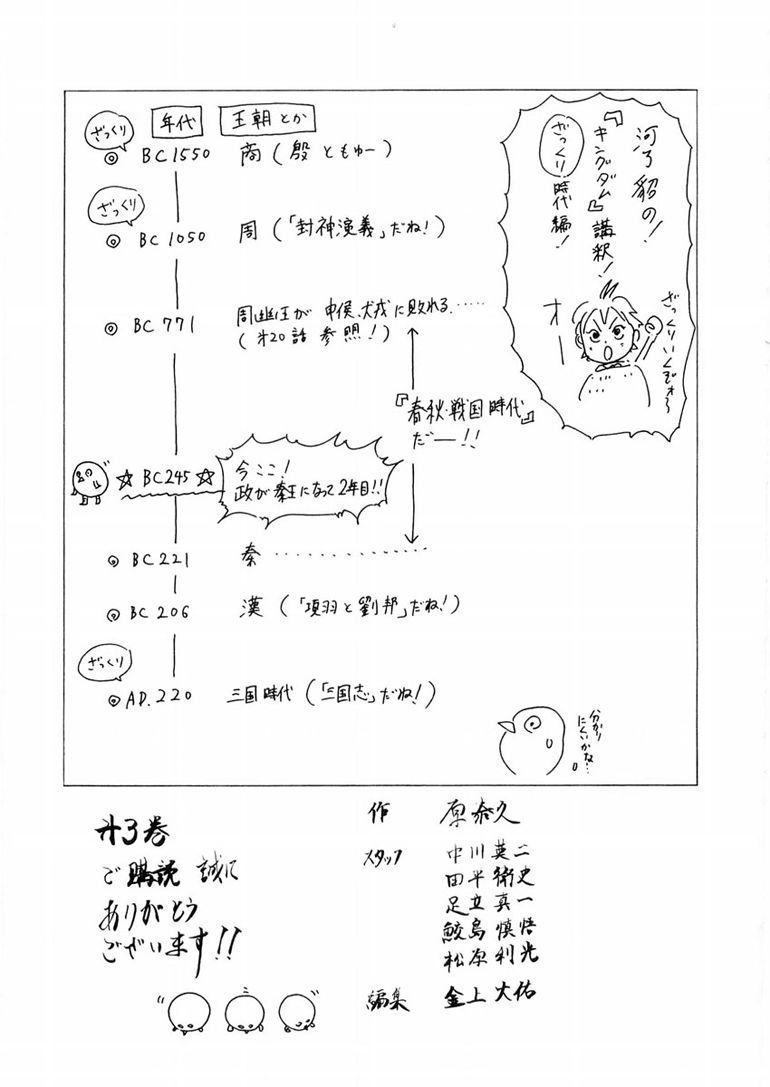 河了貂の!
『キングダム』講釈!
ざっくり時代編!
オー
ざっくりいくぞォ〜
年代 王朝とか
ざっくり
◎ BC1550 商(殷ともゆー)
ざっくり
◎ BC1050 周(「封神演義」だね!)
◎ BC771 周幽王が申侯、犬戎に敗れる……
(才20話参照!)
『春秋・戦国時代』
だー!!
☆BC245☆ 今ここ!
政が秦王になって2年目!!
◎ BC221 秦……………
◎ BC206 漢(「項羽と劉邦」だね!)
ざっくり
◎ AD.220 三国時代(「三国志」だね!)
分かり
にくいかな…
才3巻
ご購読 誠に
ありがとう
ございます!!
作 原泰久
スタッフ 中川英二
田平衛史
足立真一
鮫島慎悟
松原利光
編集 金上大佑